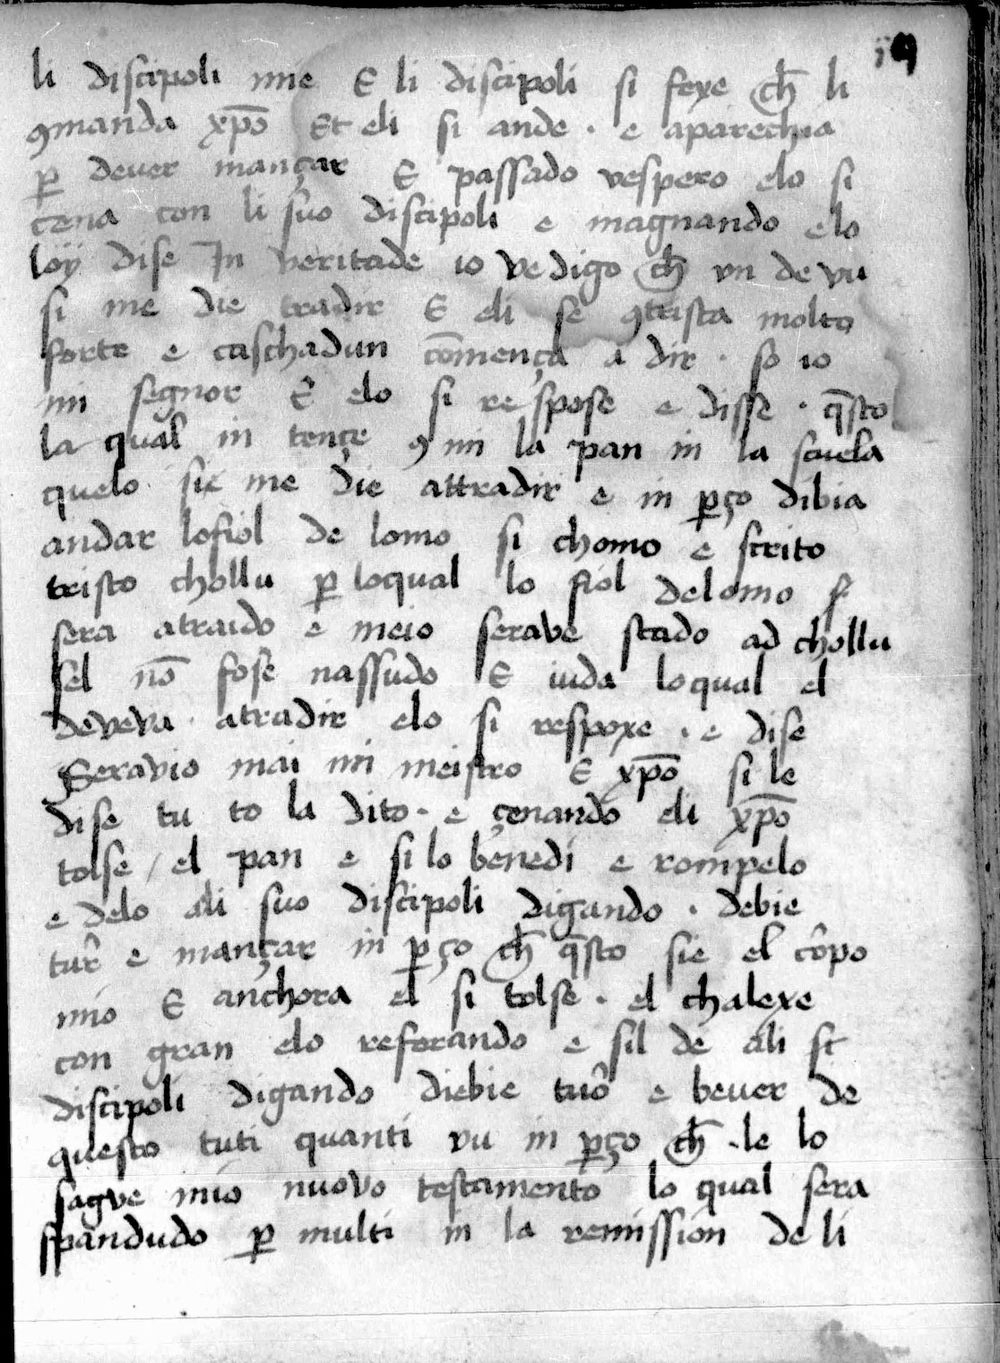 19
li discipoli mie E li discipoli si fexe ch̄ li
ꝯmanda xp̄o Et eli si ande · e aparechia
ꝑ dever mançar E passado vespero elo si
cena con li suo discipoli e magnando elo
loÿ dise In veritade io ve digo ch̄ vn de vu
si me die tradir E eli se ꝯtrista molto
forte e caschadun cōmença a dir · so io
mi segnor E elo si respose e disse · q̄sto
la qual in tençe ꝯ mi la pan in la scuela
quelo sie me die attradir e in ꝑço dibia
andar lo fiol de lomo si chomo e scrito
tristo chollu ꝑ loqual lo fiol delomo
sera atraido e meio serave stado ad chollu
sel nō fose nassudo E iuda loqual el
deveva atradir elo si respoxe · e dise
Seravio mai mi meistro E xp̄o si le
dise tu to la dito · e çenando eli xp̄o
tolse / el pan e si lo benedi e rompelo
e delo ali suo discipoli digando · debie
tur̂ e mançar in ꝑço ch̄ q̄sto sie el côpo
mio E anchora el si tolse · el chalexe
con gran elo referando e sil de ali
discipoli digando diebie tuô e bever de
questo tuti quanti vu in ꝑço ch̄ · le lo
sagve mio nuovo testamento lo qual sera
spandudo ꝑ multi in la remission de li